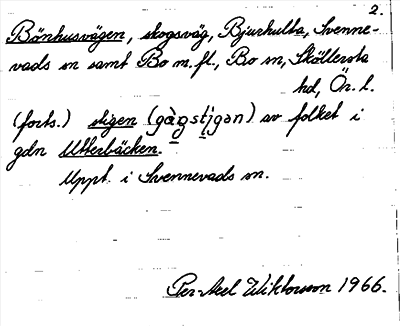 2.
Bönhusvägen, skogsväg, Bjurhulta, Svenne-
vads sn samt Bo m.fl., Bo sn, Sköllersta
hd, Ör. l.
(forts.) stigen (gàgstįgən) av folket i
gdn Utterbäcken.
Uppt. i Svennevads sn.
Per-Axel Wiktorsson 1966.